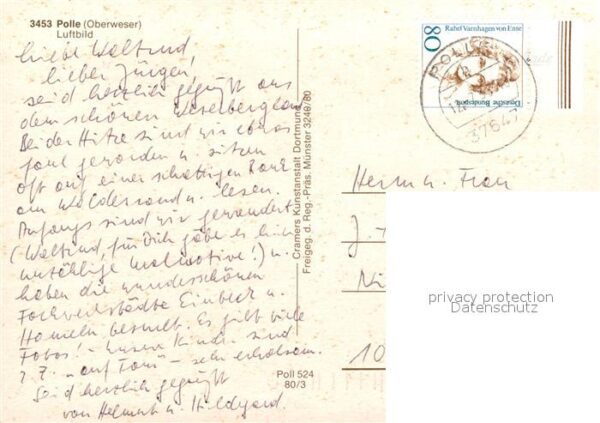 3453 Polle (Oberweser)
Luftbild
Liebe Waltrud,
lieber Jürgen,
seid herzlich gegrüßt aus
dem schönen Weserbergland
Bei der Hitze sind wir etwas
faul geworden u. sitzen
oft auf einer schattigen Bank
am Waldesrand u. lesen.
Anfangs sind wir gewandert
(Waltrud, für Dich gäbe es hier
unzählige Malmotive!) u.
haben die wunderschönen
Fachwerkstädte Einbeck u.
Hameln besucht. Es gibt viele
Fotos! - Unsere Kinder sind
z. Z. "auf Tour" - sehr erholsam.
Seid herzlich gegrüßt
von Helmut u. Hildegard.
Cramers Kunstanstalt Dortmund
Freigeg. d. Reg.-Präs. Münster 3249/80
Poll 524
80/3
Rahel Varnhagen von Ense
80
Deutsche Bundespost
POLLE
37647
Herrn u. Frau
J
Ni
10
privacy protection
Datenschutz